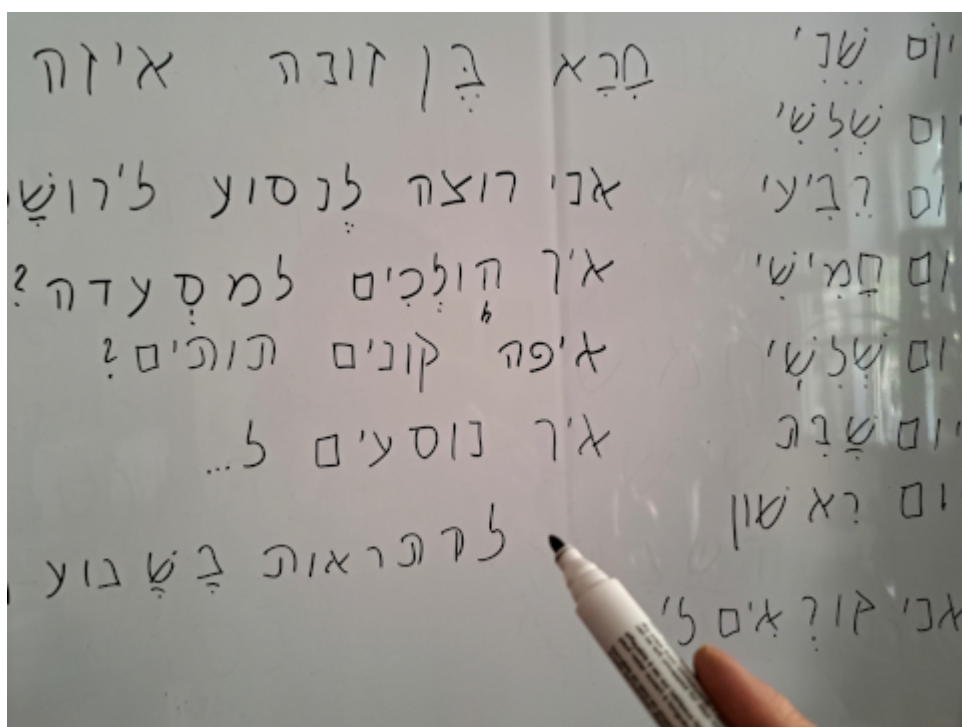 יוֹם שֵׁנִי
יום שְׁלִשִׁי
יום רְבִיעִי
יום חֲמִישִׁי
יום שְׁלִשִׁי
יום שַׁבָּת
יום רִאשׁון
אני קורְאִים לי
חָרָא בֶּן זונה איזה
אני רוצה לְנסוע
איך הולְכִים למסְעדה?
איפה קונים תותים?
איך נוסעים ל...